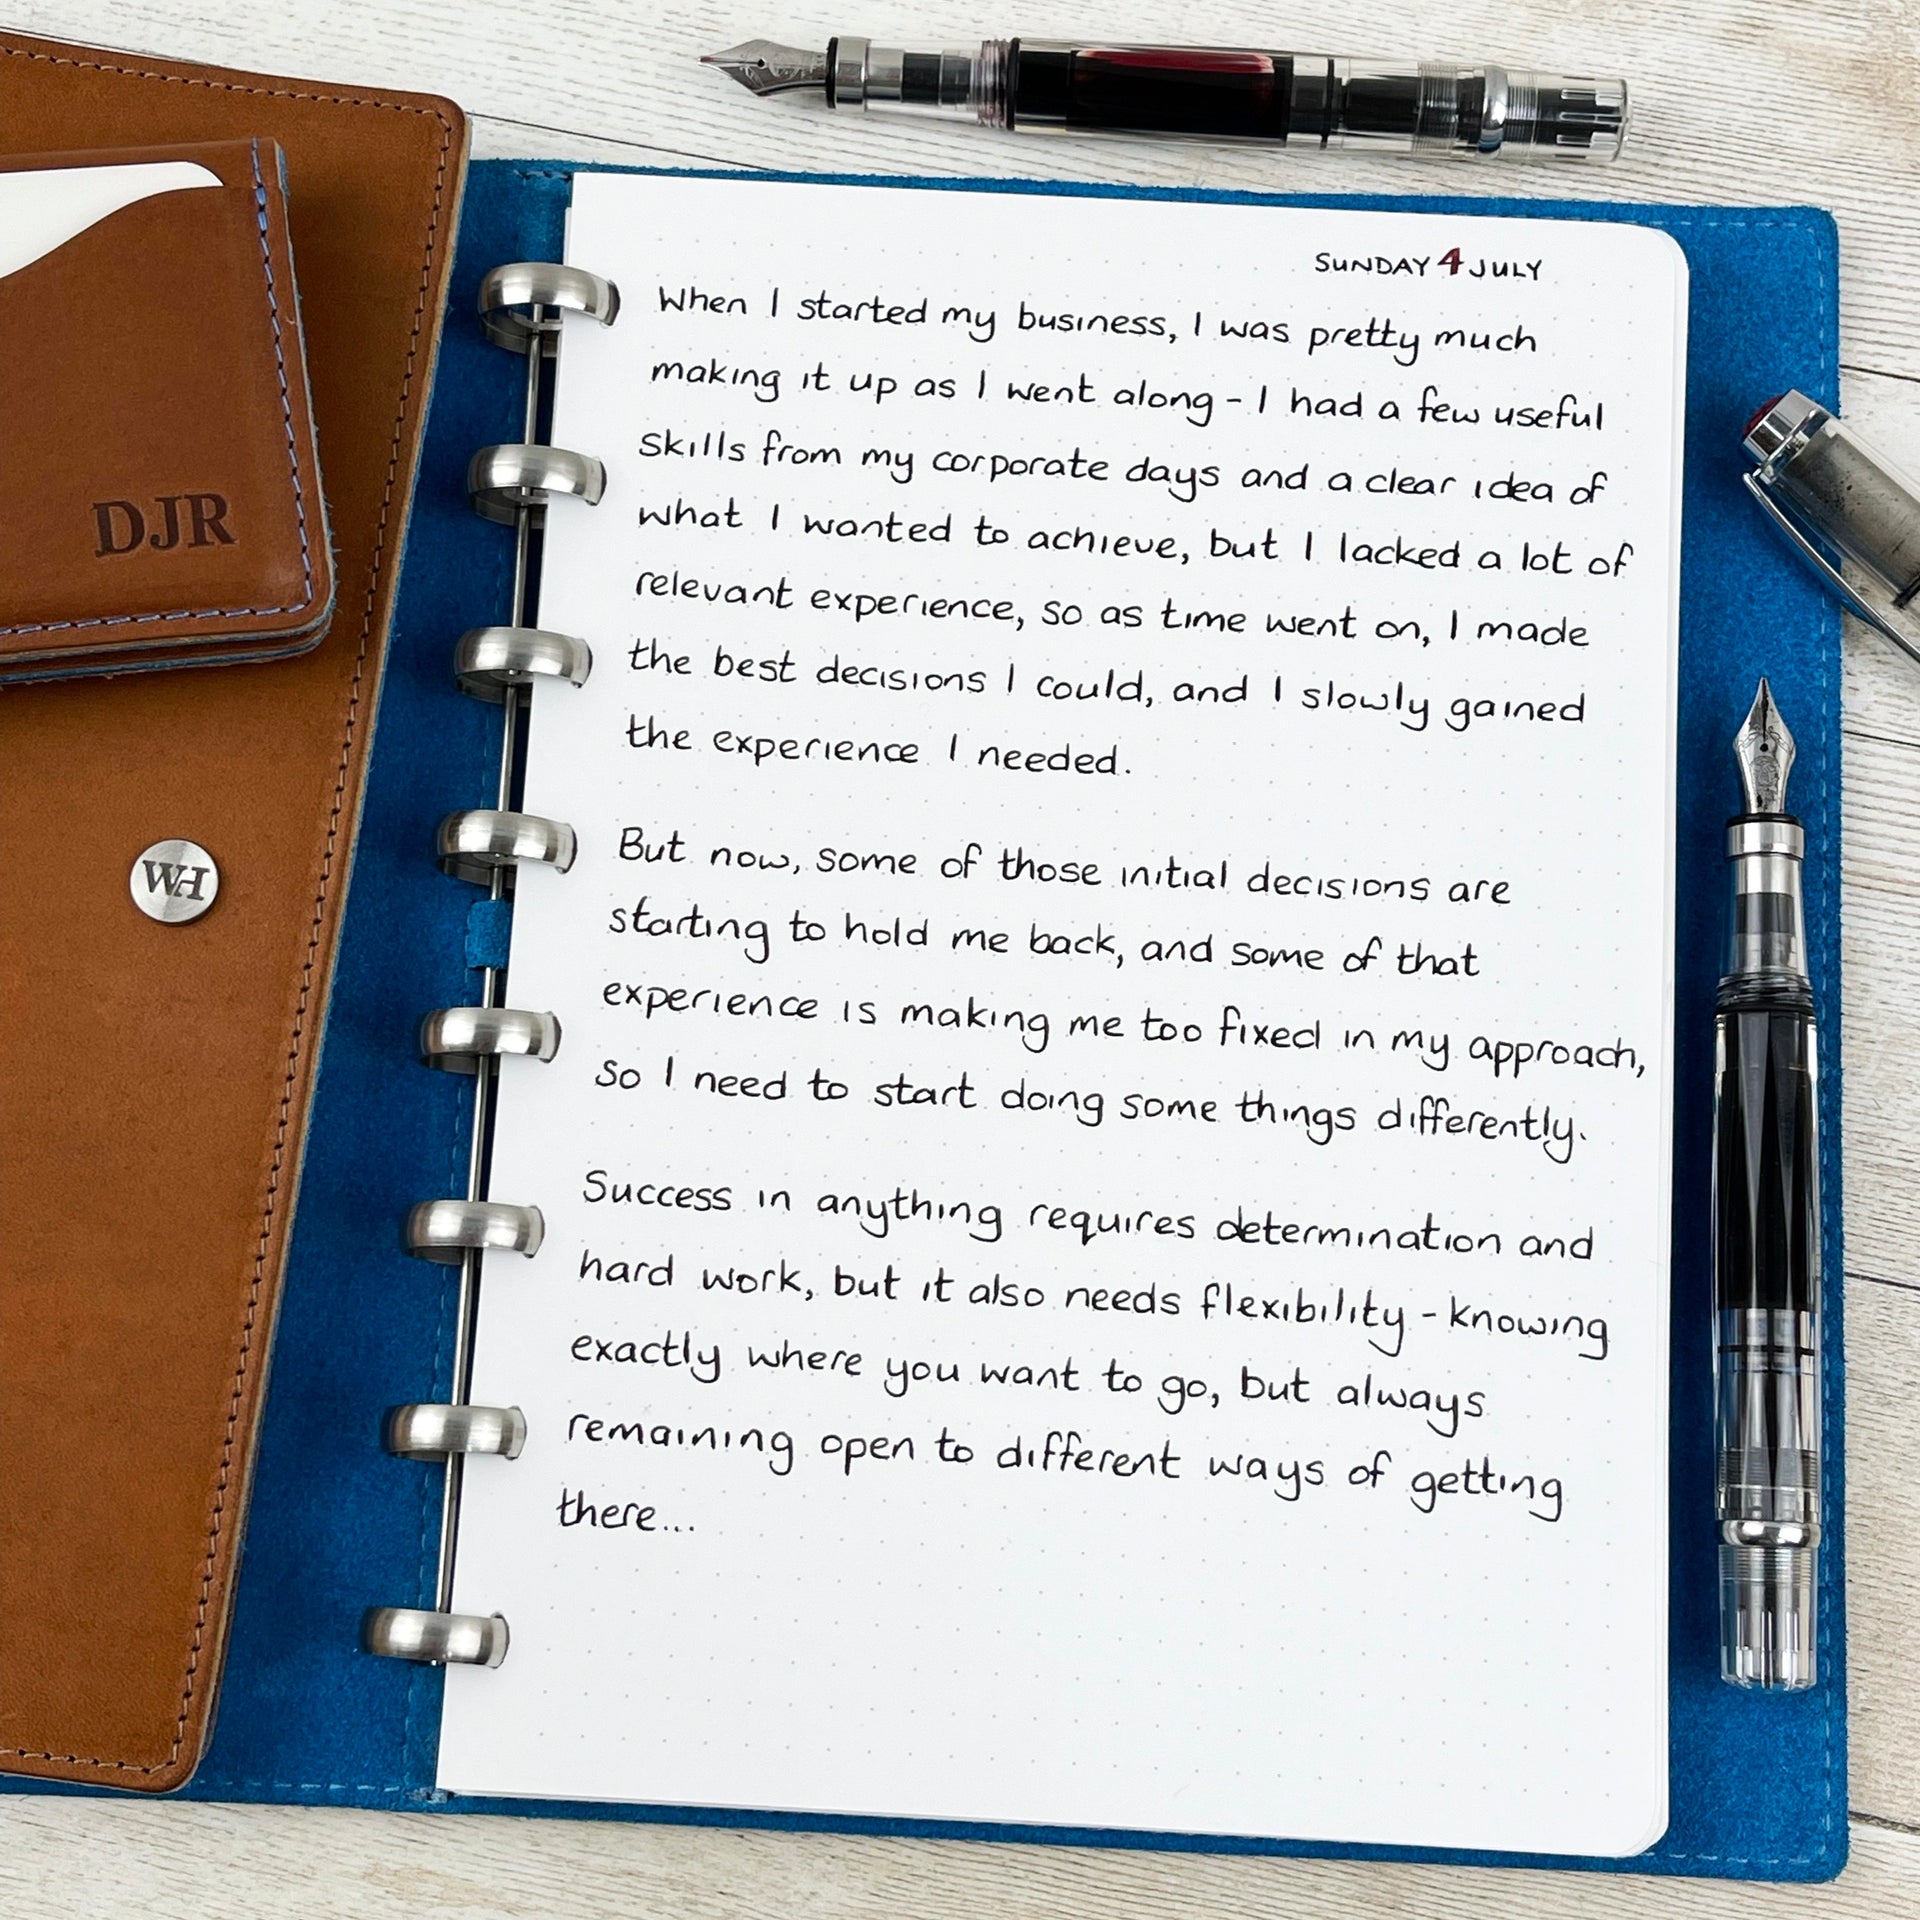 SUNDAY 4 JULY
When I started my business, I was pretty much
making it up as I went along - I had a few useful
skills from my corporate days and a clear idea of
what I wanted to achieve, but I lacked a lot of
relevant experience, so as time went on, I made
the best decisions I could, and I slowly gained
the experience I needed.
But now, some of those initial decisions are
starting to hold me back, and some of that
experience is making me too fixed in my approach,
so I need to start doing some things differently.
Success in anything requires determination and
hard work, but it also needs flexibility - knowing
exactly where you want to go, but always
remaining open to different ways of getting
there...
DJR
WH